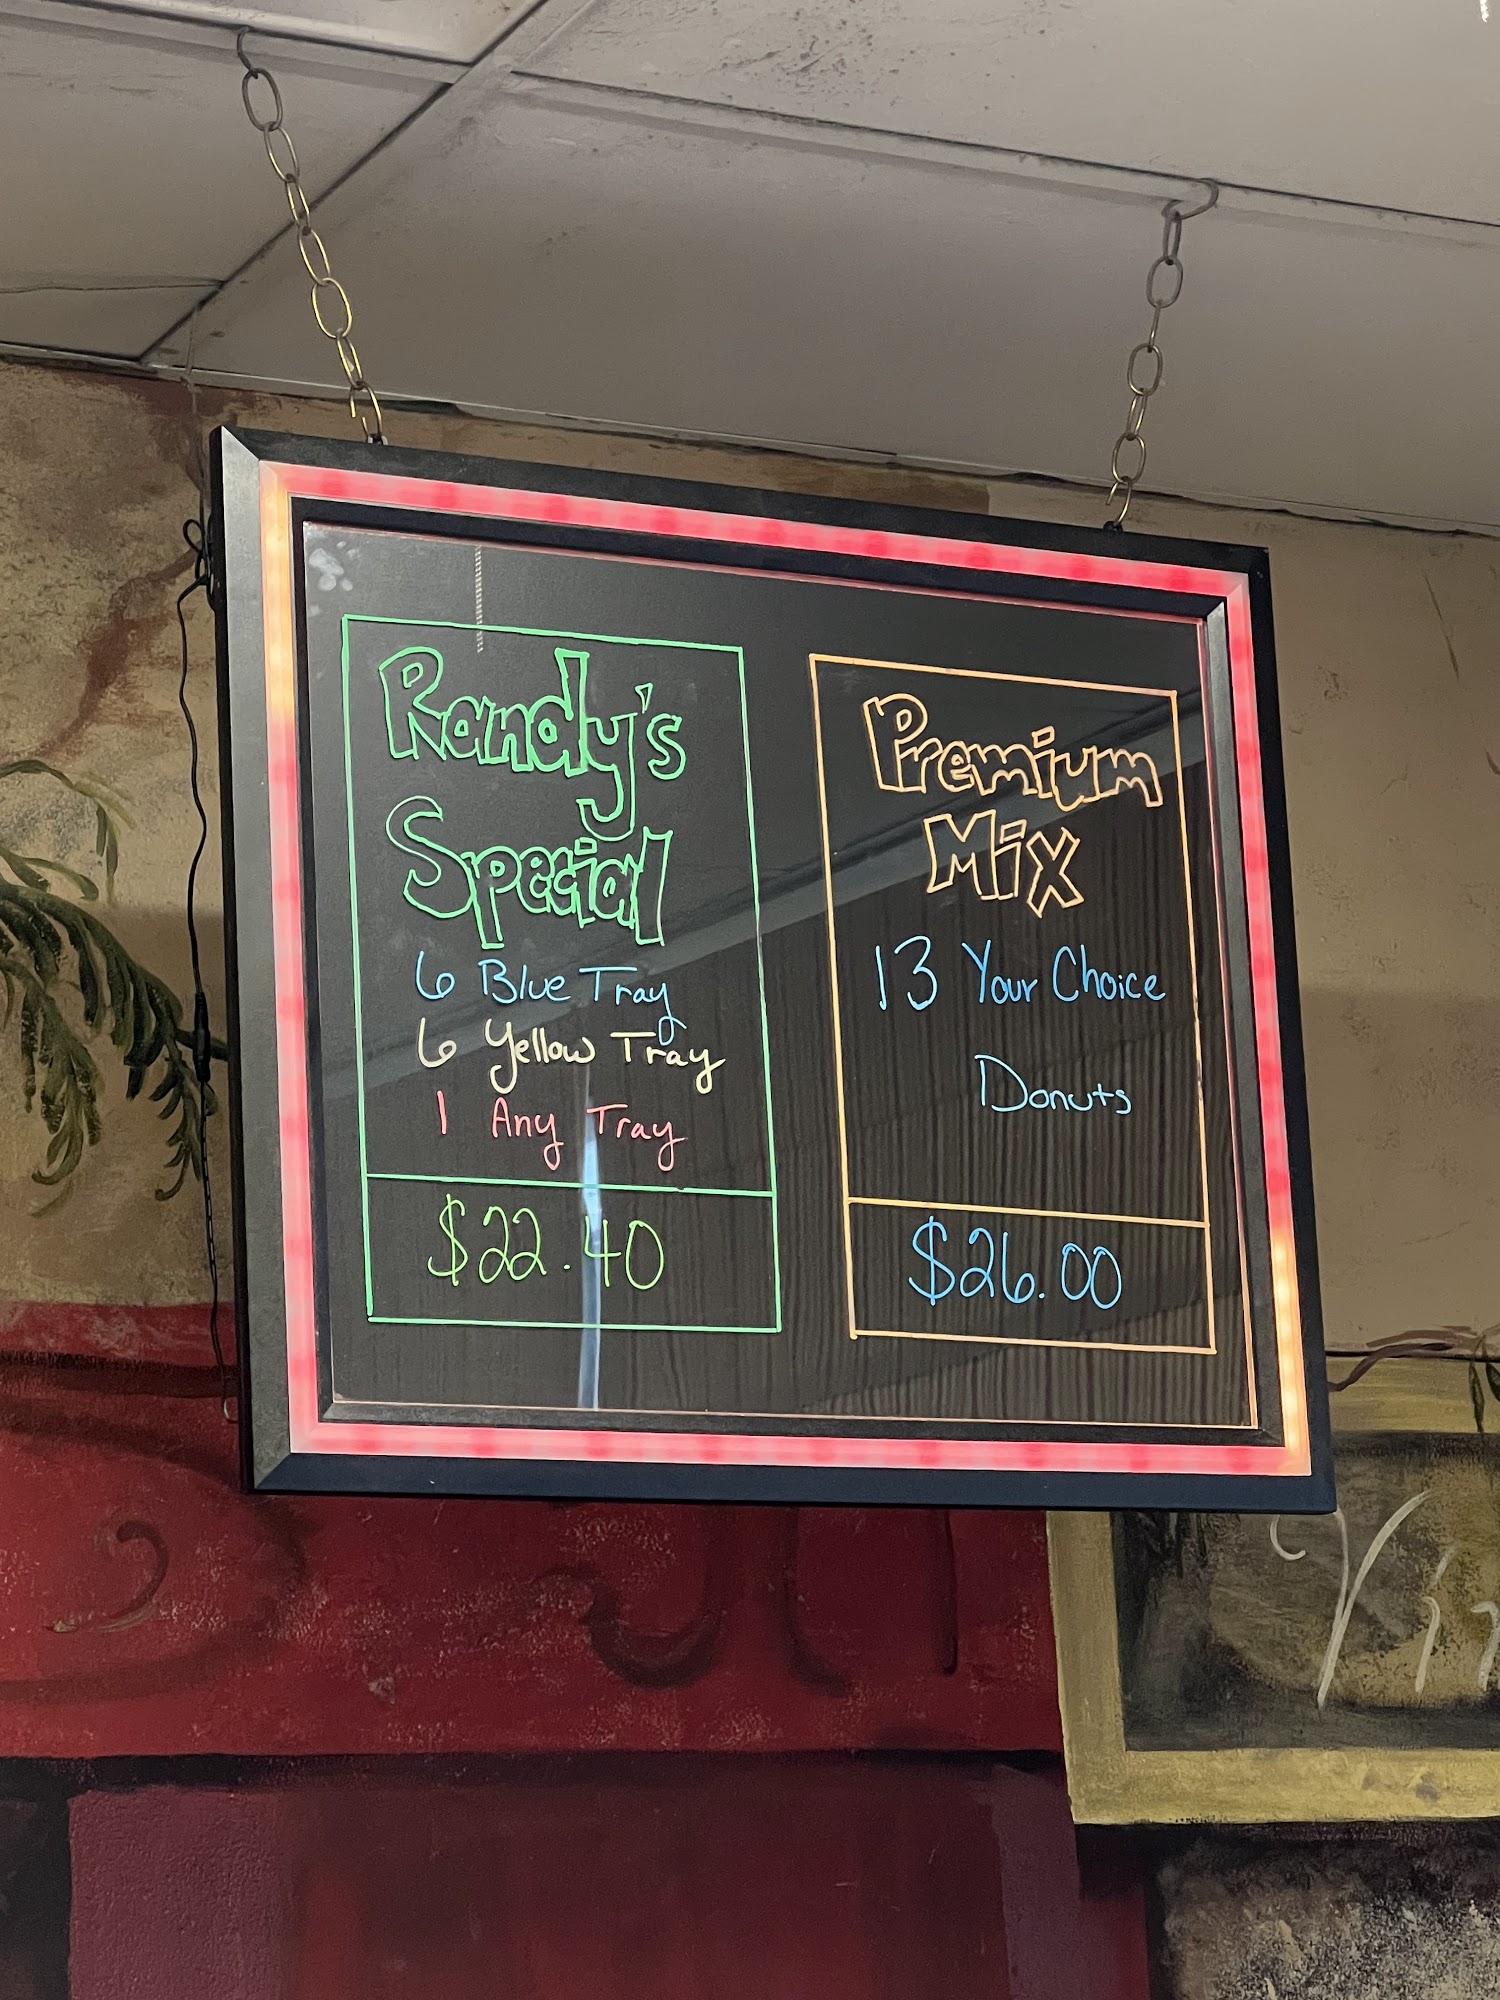 Randy's
Special
6 Blue Tray
6 Yellow Tray
1 Any Tray
$22.40
Premium
Mix
13 Your Choice
Donuts
$26.00